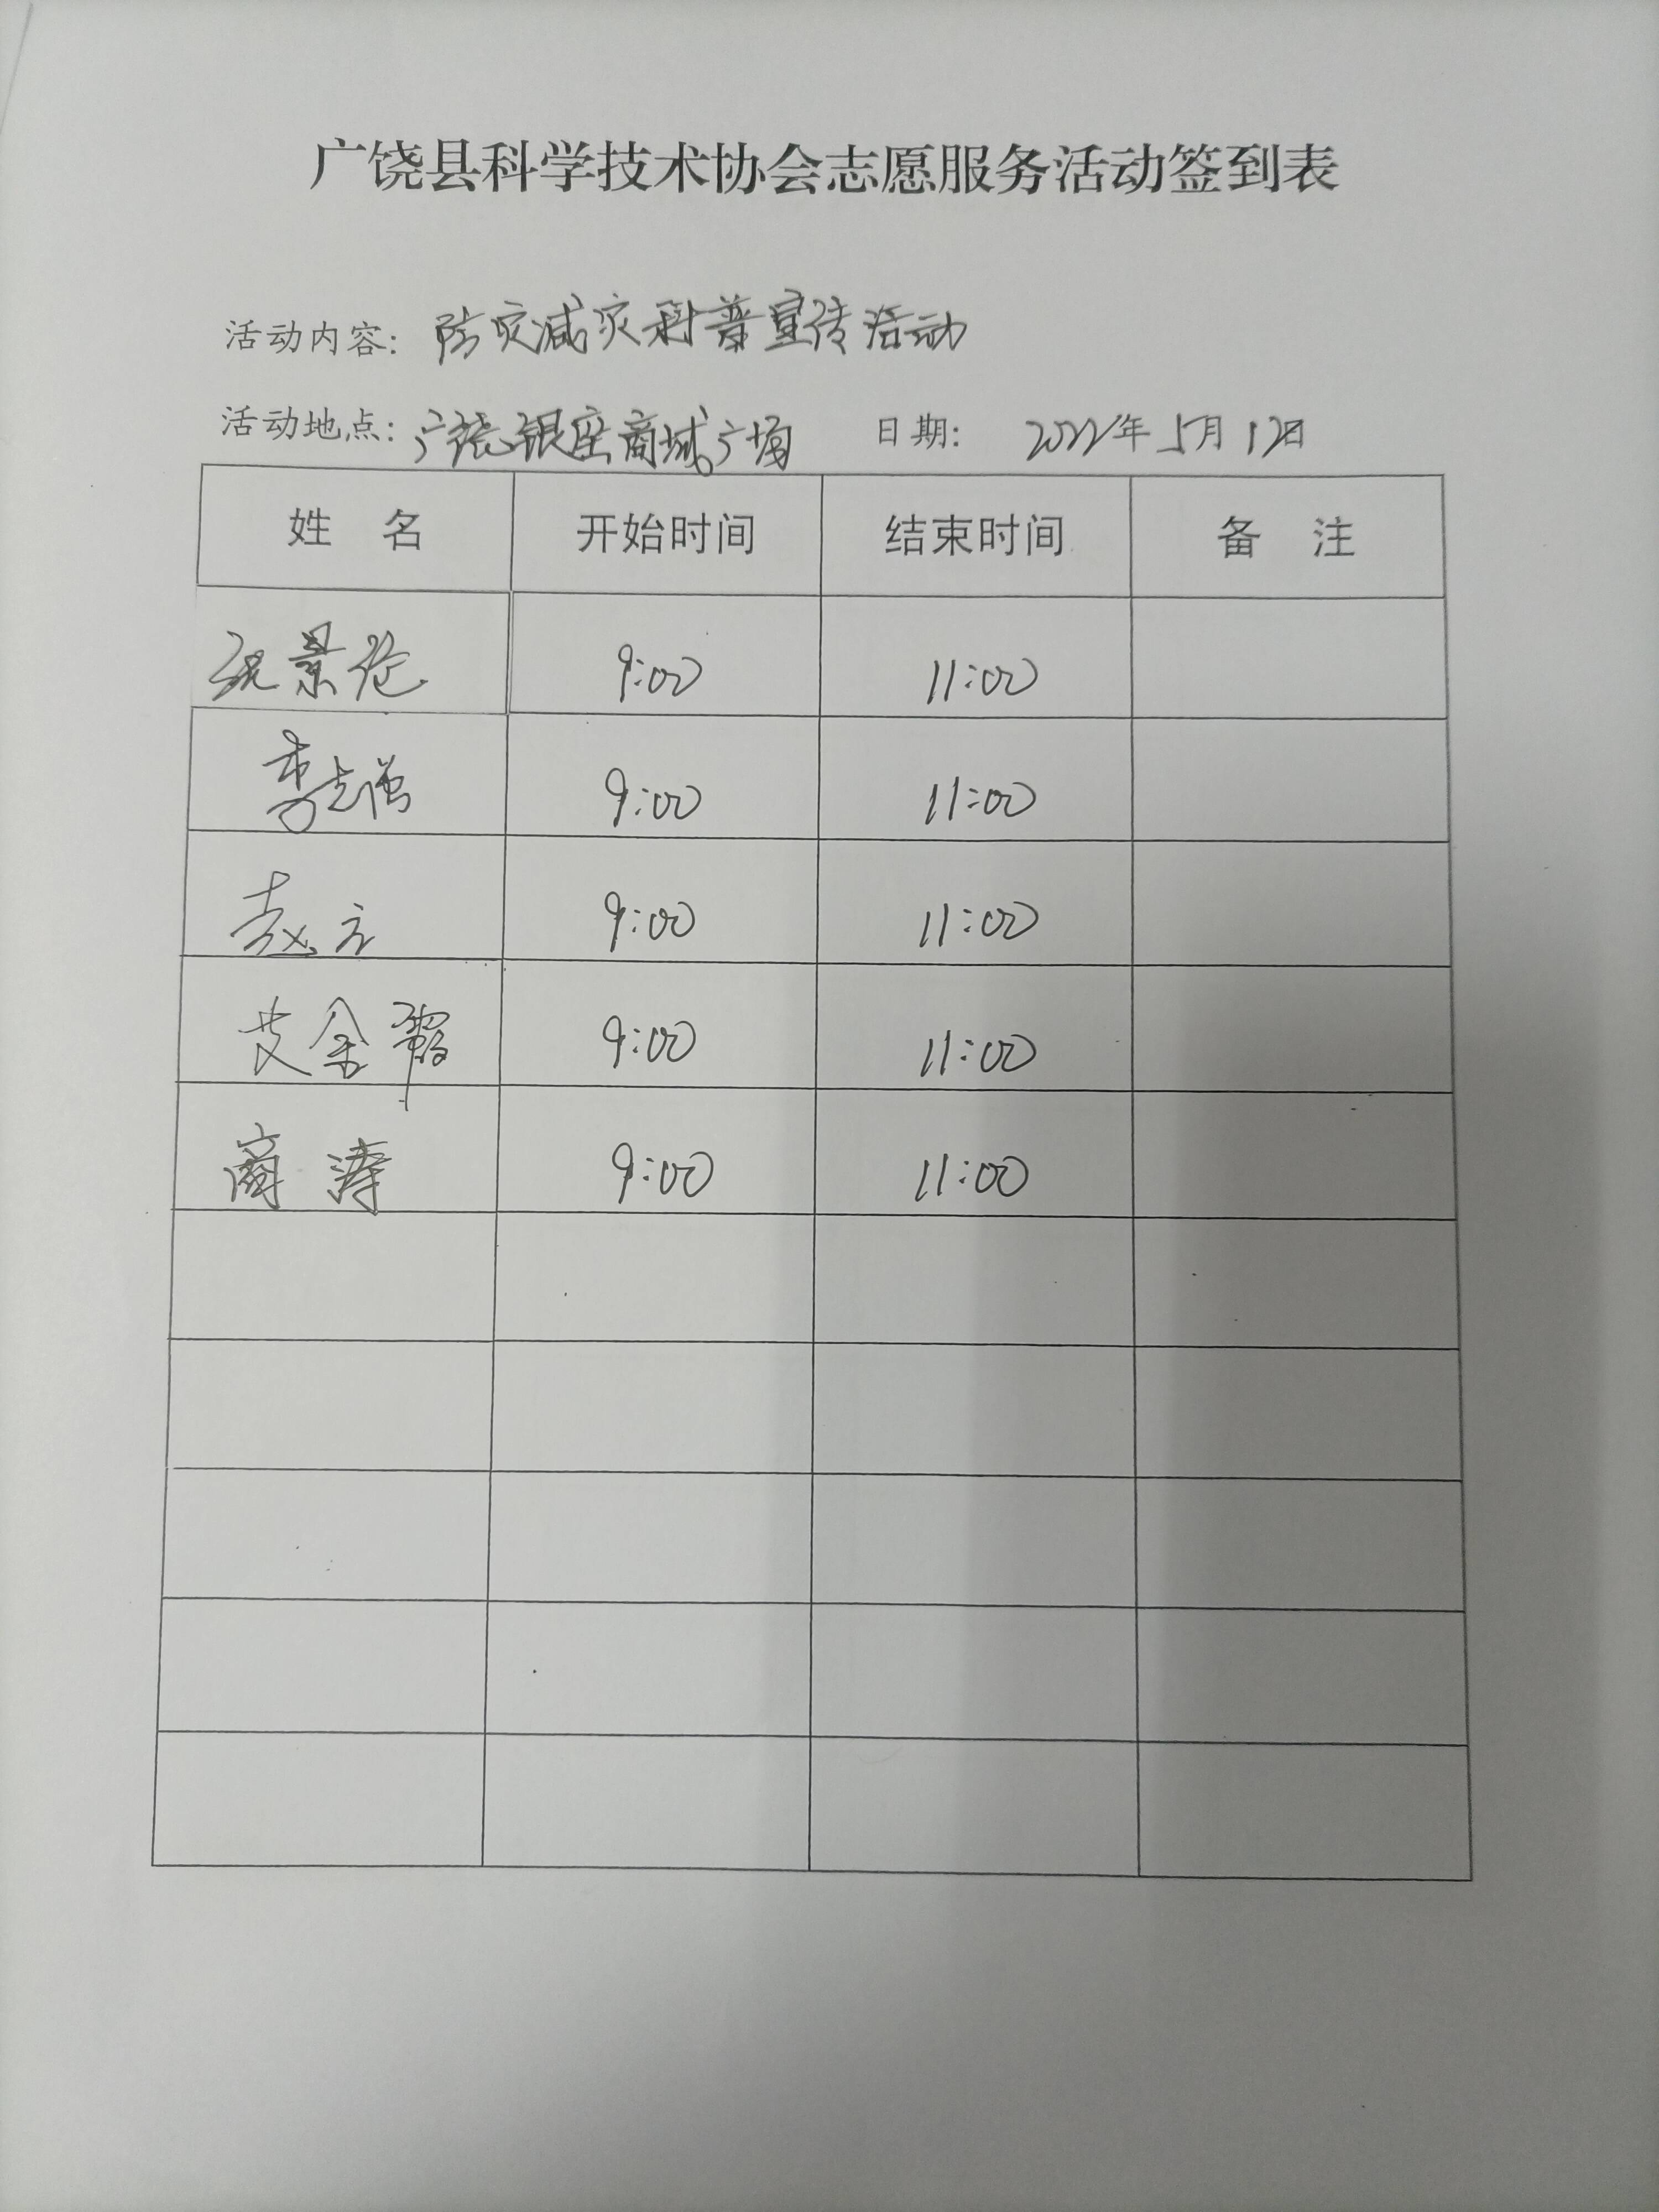 广饶县科学技术协会志愿服务活动签到表
活动内容: 防灾减灾科普宣传活动
活动地点: 广饶银座商城广场 日期: 2022年5月12日
姓 名 开始时间 结束时间 备 注
景 9:00 11:00
李志强 9:00 11:00
赵立 9:00 11:00
艾金 9:00 11:00
商涛 9:00 11:00